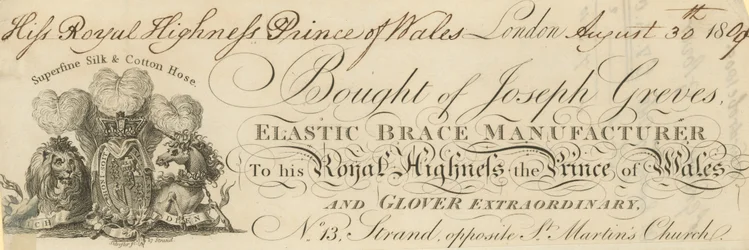 Hiſs Royal Highneſs Prince of Wales London August 30th 180
Superfine Silk & Cotton Hose.
Bought of Joseph Greves,
ELASTIC BRACE MANUFACTURER
To his Royal Highneſs the Prince of Wales
AND GLOVER EXTRAORDINARY,
No. 13, Strand, opposite St. Martin's Church.
ICH DIEN